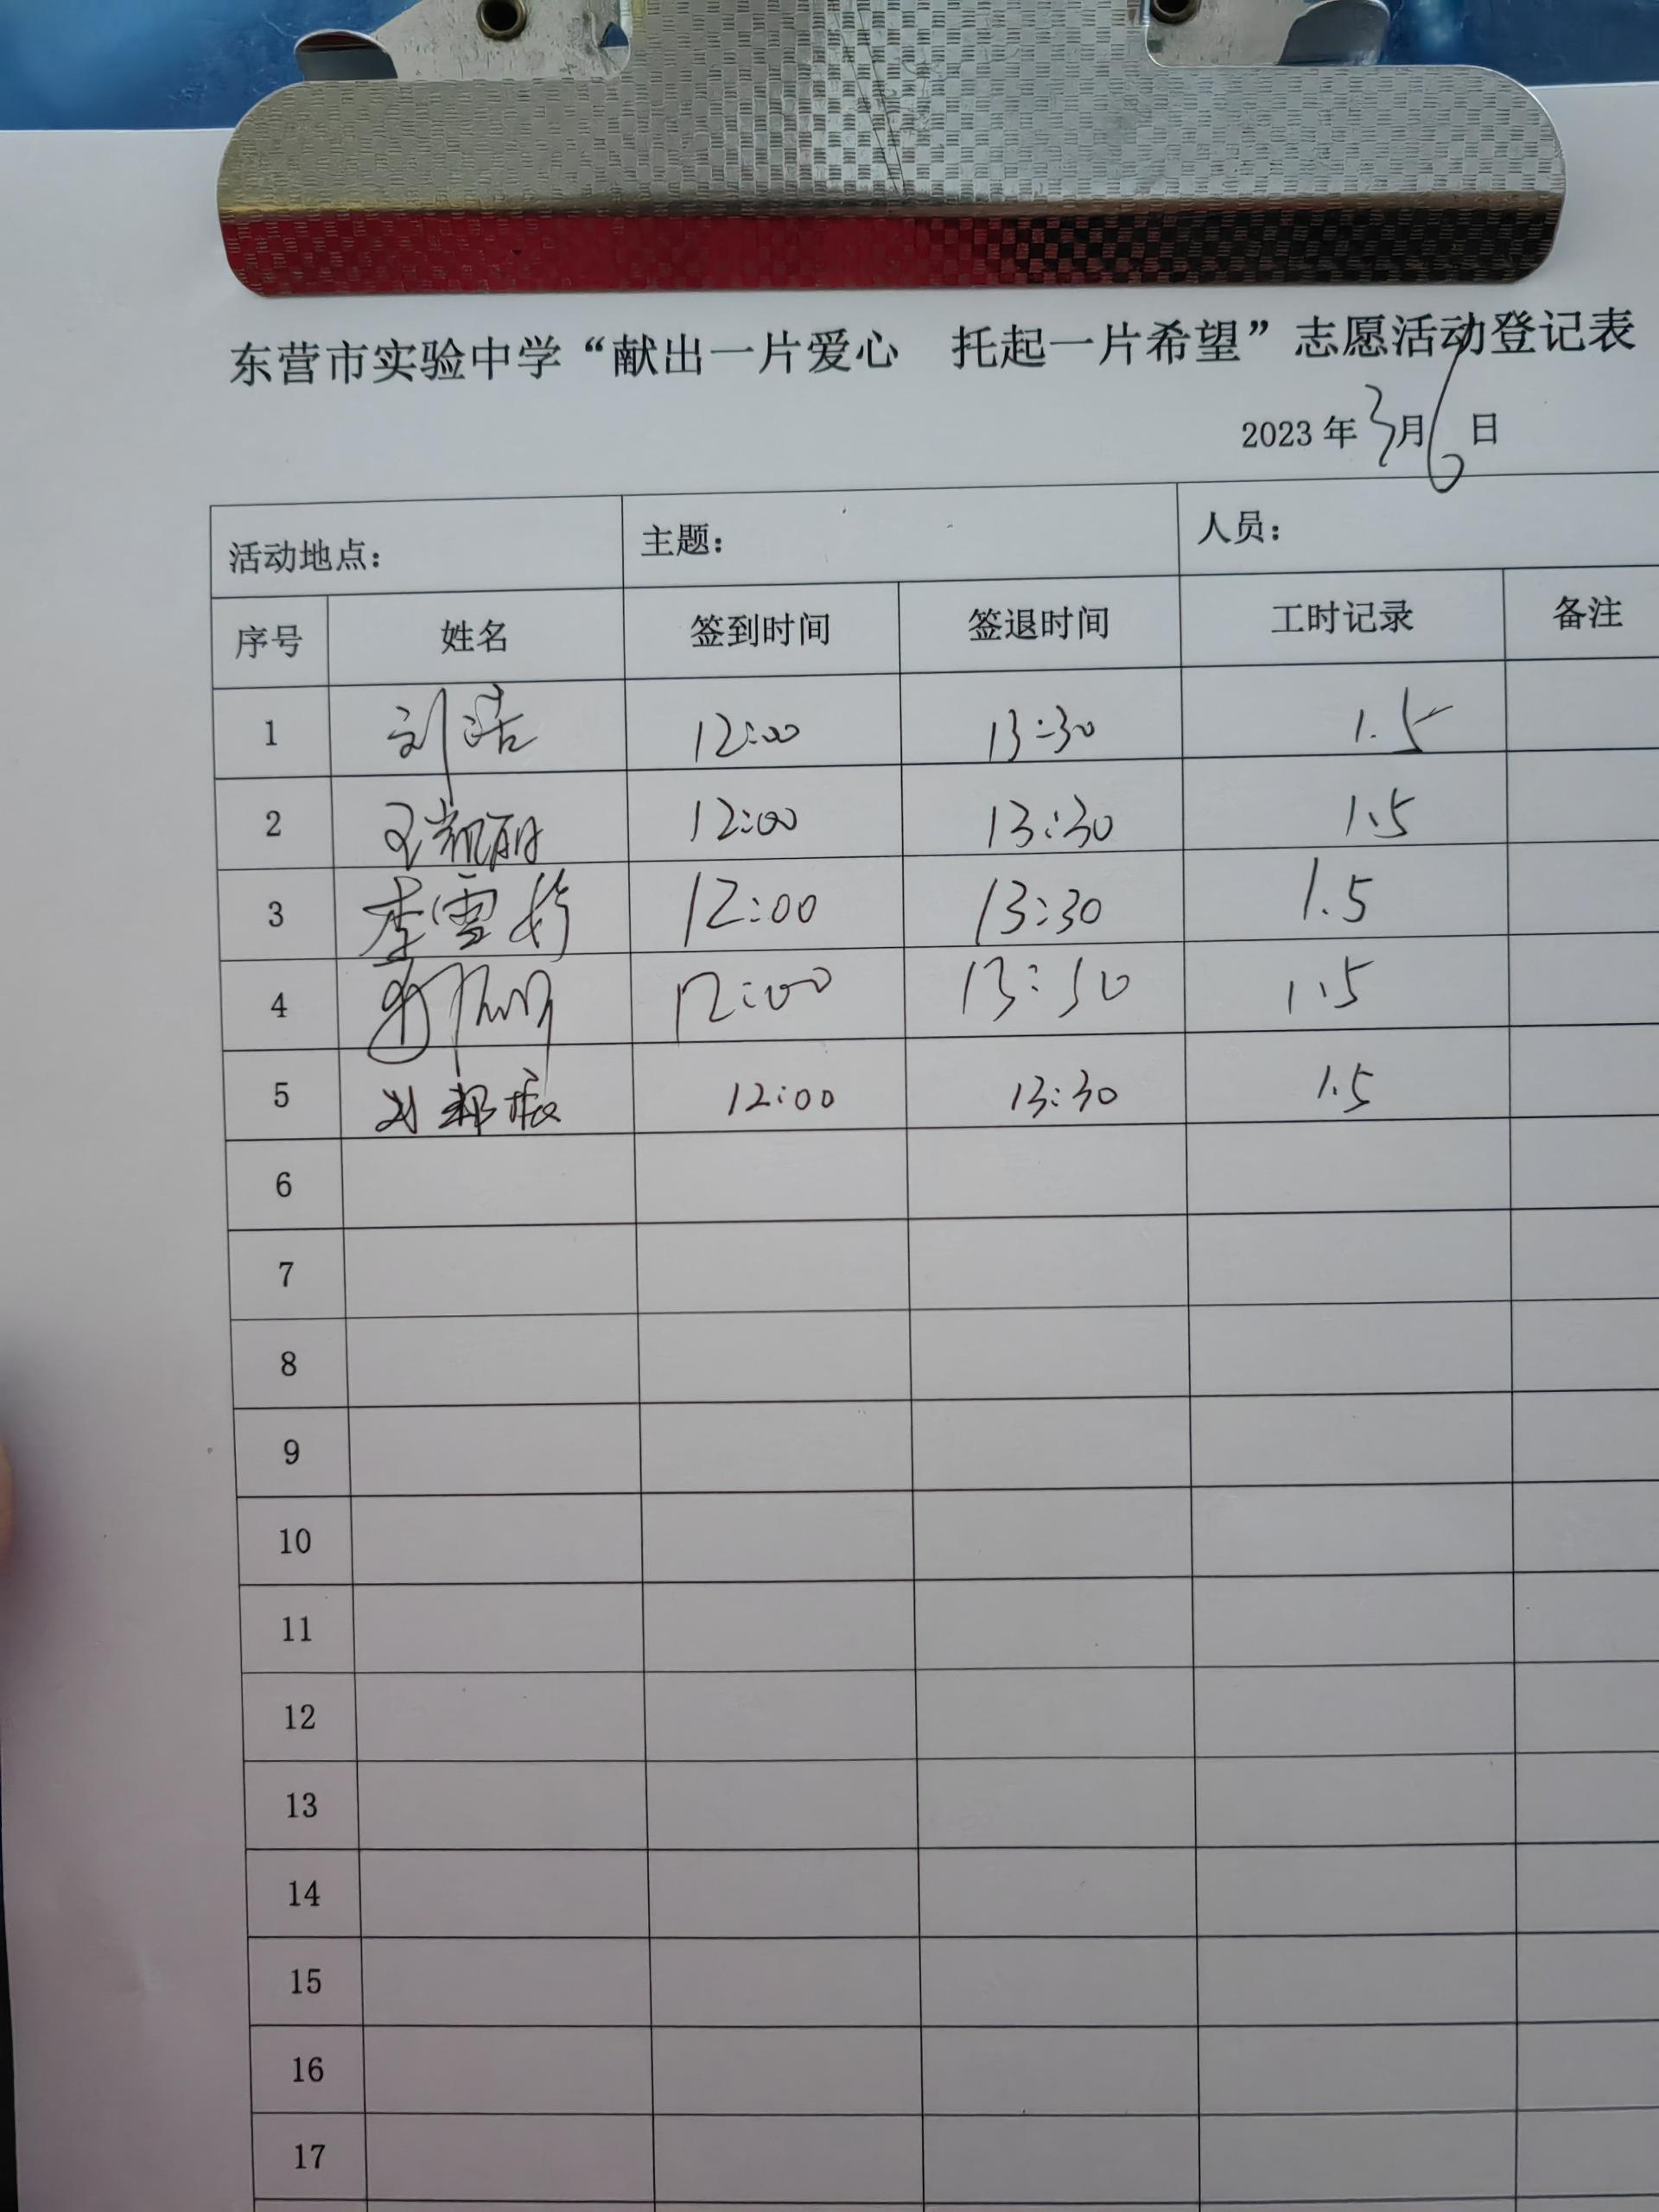 东营市实验中学“献出一片爱心 托起一片希望”志愿活动登记表
2023 年 3 月 6 日
活动地点： 主题： 人员：
序号 姓名 签到时间 签退时间 工时记录 备注
1 刘浩 12:00 13:30 1.5
2 王凯丽 12:00 13:30 1.5
3 李雪婷 12:00 13:30 1.5
4 12:00 13:30 1.5
5 刘邦振 12:00 13:30 1.5
6
7
8
9
10
11
12
13
14
15
16
17